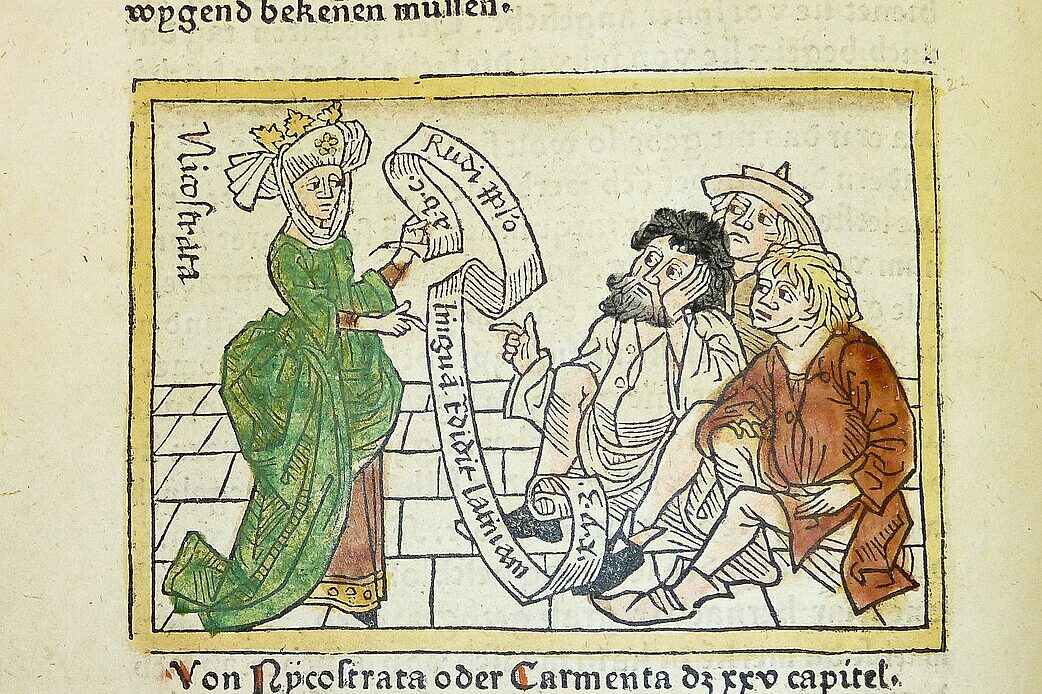 wygend bekeñen muſſen.
Nicoſtrata
Rudi
a.b.c.
edidit latinam
x.y.z.
Von Nycoſtrata oder Carmenta dz xxv capitel.